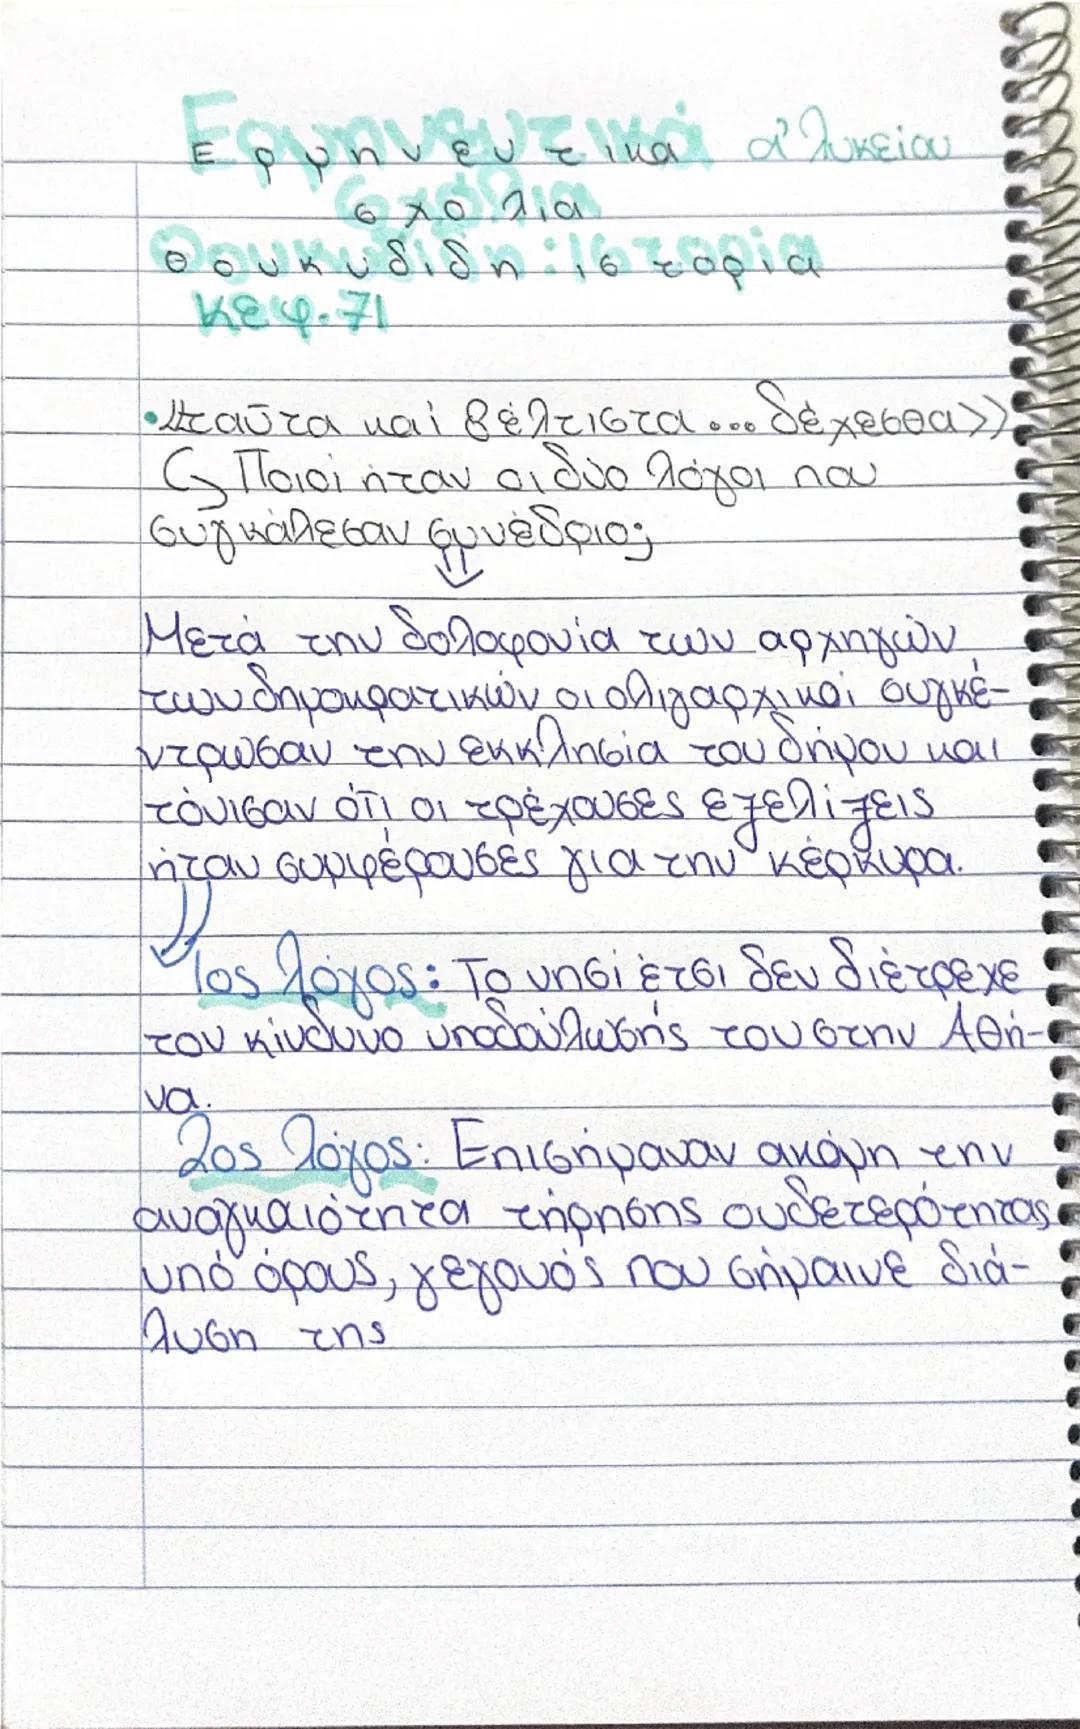 Ερμηνευτικά α' λυκείου
σχόλια
Θουκυδίδη: Ιστορία
κεφ. 71
• «ταῦτα καί βέλτιστα... δέχεσθα»
↳ Ποιοί ήταν οι δύο λόγοι που
συγκάλεσαν συνέδριο;
⇓
Μετά την δολοφονία των αρχηγών
των δημοκρατικών οι ολιγαρχικοί συγκέ-
ντρωσαν την εκκλησία του δήμου και
τόνισαν ότι οι τρέχουσες εξελίξεις
ήταν συμφέρουσες για την κέρκυρα.
1ος λόγος: Το νησί έτσι δεν διέτρεχε
τον κίνδυνο υποδούλωσής του στην Αθή-
να.
2ος λόγος: Επισήμαναν ακόμη την
αναγκαιότητα τήρησης ουδετερότητας
υπό όρους, γεγονός που σήμαινε διά-
λυση της